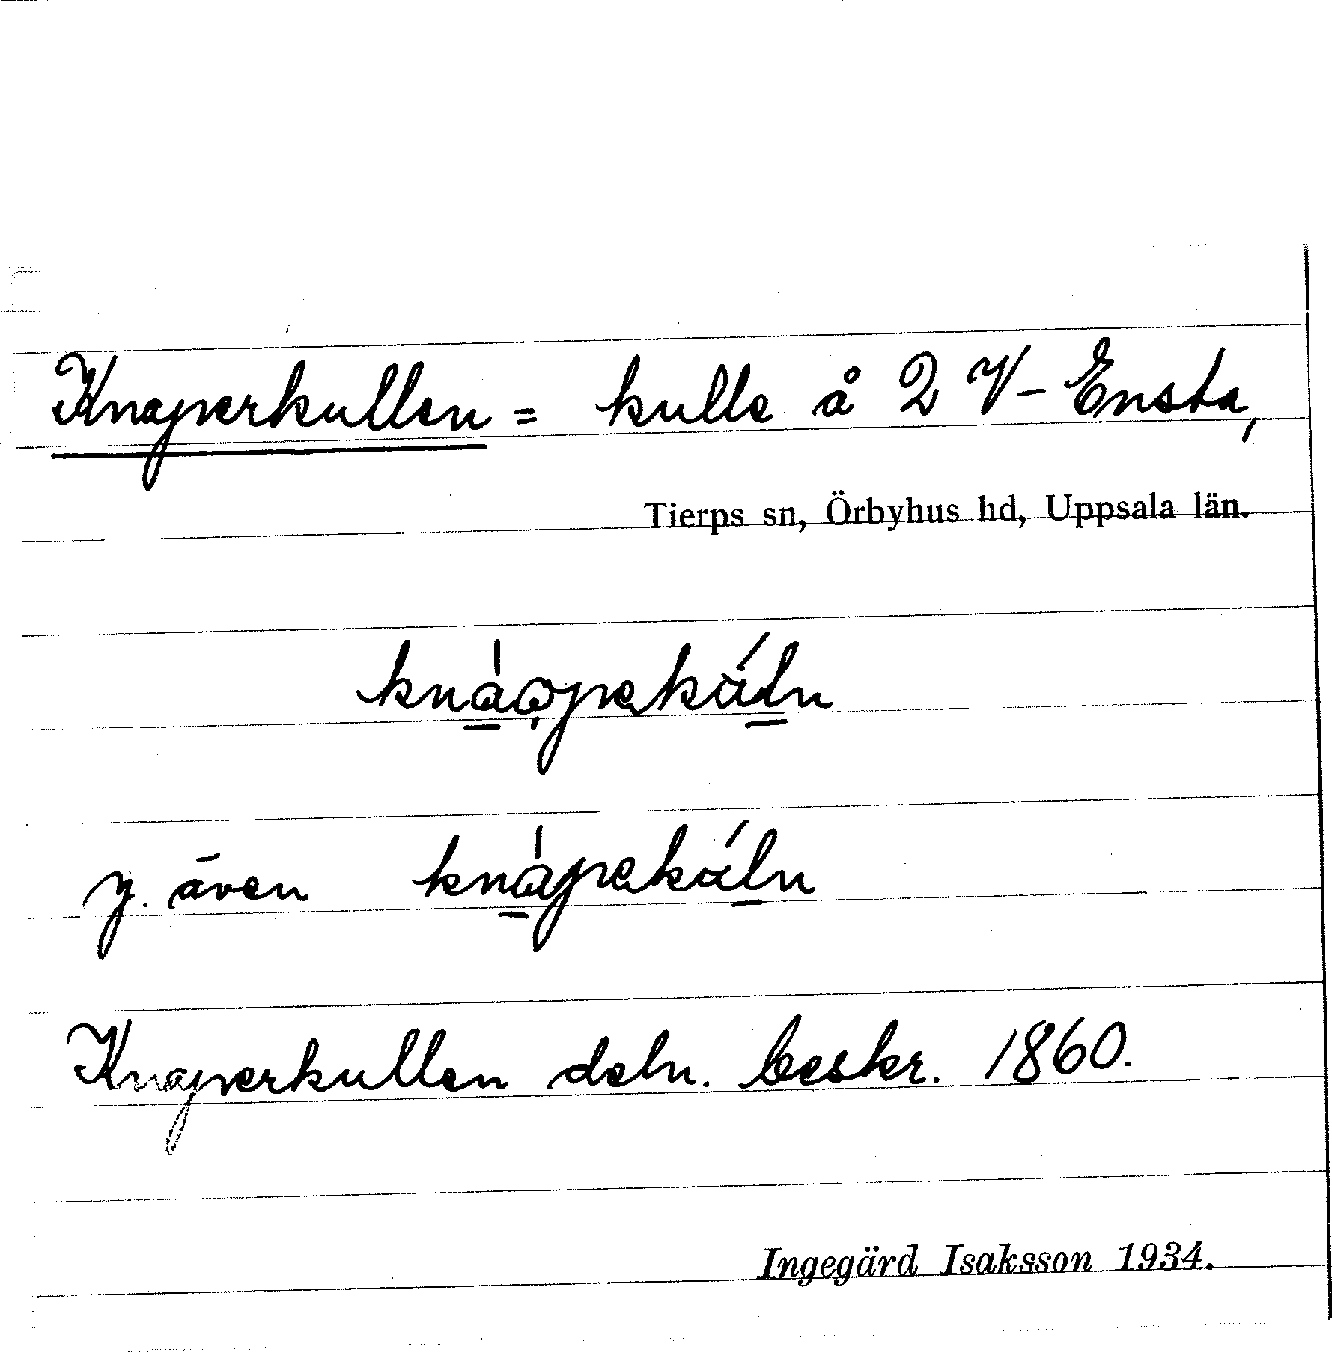 Knaperkullen = kulle å 2 V-Ensta,
Tierps sn, Örbyhus hd, Uppsala län.
y. även
Knaperkullen deln. beskr. 1860.
Ingegärd Isaksson 1934.